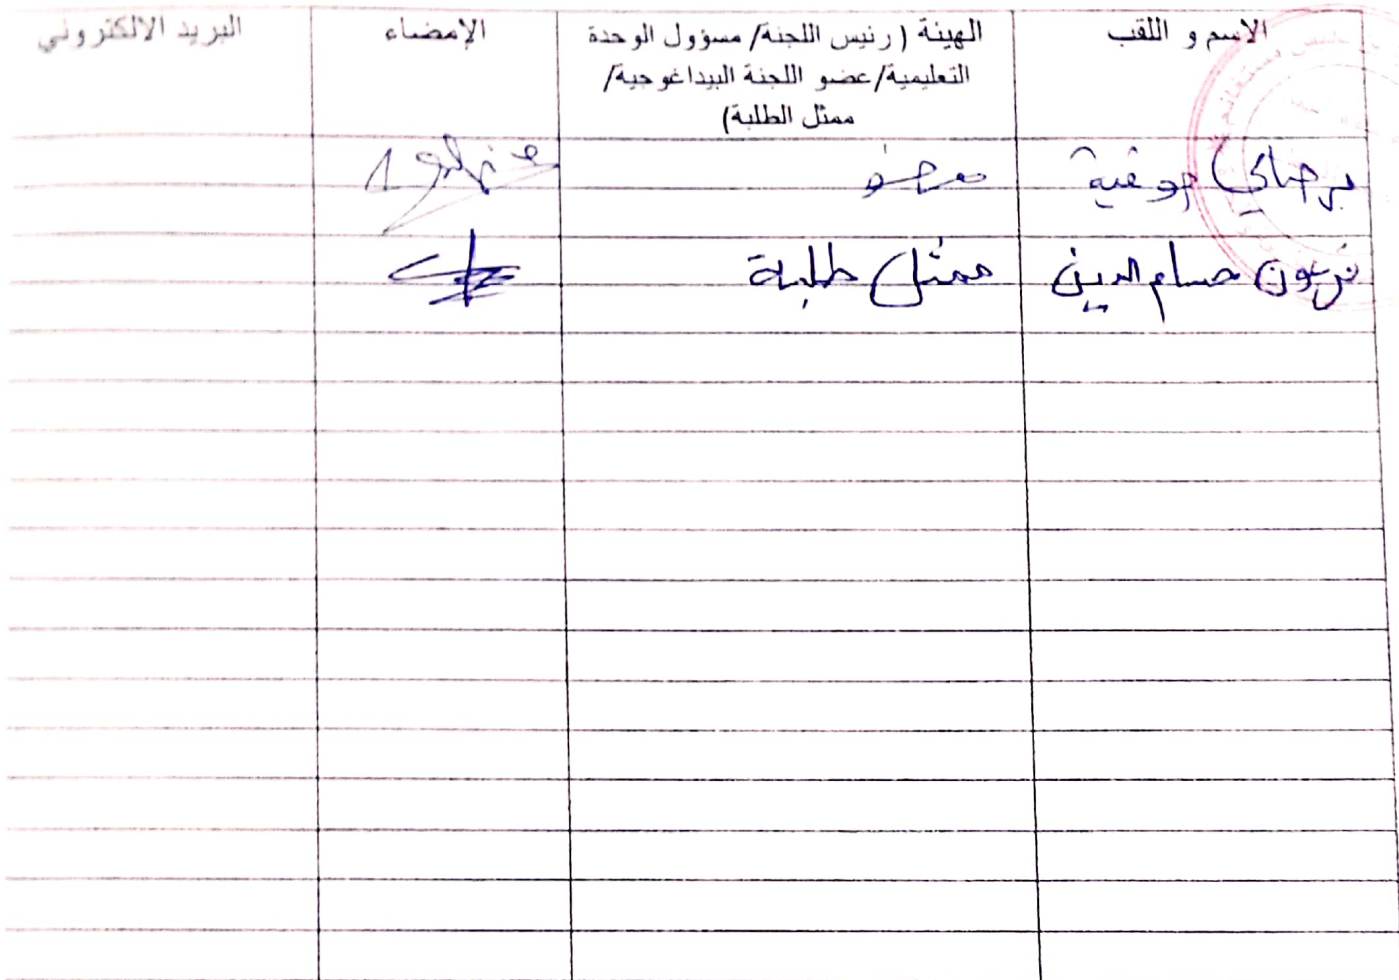 الاسم و اللقب
الهيئة (رئيس اللجنة/ مسؤول الوحدة
التعليمية/عضو اللجنة البيداغوجية/
ممثل الطلبة)
الإمضاء
البريد الالكتروني
عضو
حسام الدين
ممثل طلبة